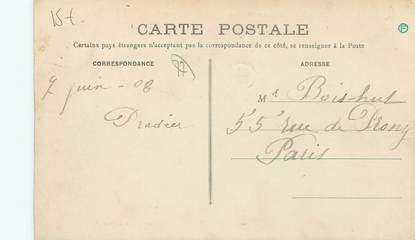 15t.
CARTE POSTALE
Certains pays étrangers n'acceptant pas la correspondance de ce côté, se renseigner à la Poste
CORRESPONDANCE
ADRESSE
7 juin - 08
Mr Bois-hut
55 rue de Prony
Paris